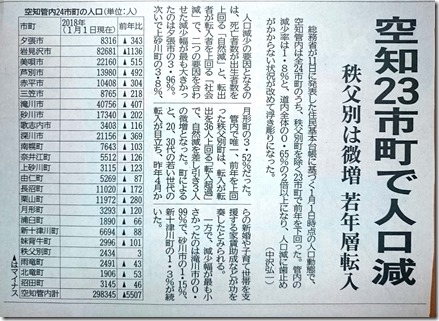 空知23市町で人口減
秩父別は微増 若年層転入
総務省が11日に発表した住民基本台帳に基づく1月1日時点の人口動態で、
空知管内は全24市町のうち、秩父別町を除く23市町で前年を下回った。管内の
減少率は1・8%と、道内全体の0・65%の2倍以上になり、人口減に歯止め
がかからない状況が改めて浮き彫りになった。
(中沢弘一)
人口減少の要因となるの
は、死亡者数が出生者数を
上回る「自然減」と、転出
者が転入者を上回る「社会
減」で、二つの要因を合わ
せた減少幅が最も大きかっ
たのは夕張市の3・96%。
次いで上砂川町の3・63%、
月形町の3・52%だった。
管内で唯一、前年を上回
った秩父別町は、転入が転
出を36人上回る「転入超過」
で、自然減を差し引き3人
の微増となった。町による
と、20、30代の若い世代の
転入が目立ち、昨年4月か
らの新婚や子育て世帯を支
援する家賃助成などが功を
奏したとみられる。
一方、減少幅が最も小
さかったのは滝川市の0・
99%で、砂川市の1・15%、
新十津川町の1・3%が続
いた。
空知管内24市町の人口(単位:人)
市町 2018年(1月1日現在) 前年比
夕張市 8316 ▲343
岩見沢市 82681 ▲1136
美唄市 22160 ▲515
芦別市 13980 ▲492
赤平市 10408 ▲304
三笠市 8765 ▲218
滝川市 40756 ▲407
砂川市 17340 ▲202
歌志内市 3403 ▲116
深川市 21156 ▲369
南幌町 7643 ▲103
奈井江町 5512 ▲126
上砂川町 3115 ▲123
由仁町 5269 ▲87
長沼町 11020 ▲172
栗山町 11972 ▲280
月形町 3293 ▲120
浦臼町 1890 ▲66
新十津川町 6694 ▲88
妹背牛町 2996 ▲101
秩父別町 2434 3
雨竜町 2491 ▲43
北竜町 1906 ▲53
沼田町 3145 ▲46
空知管内計 298345 ▲5507
▲はマイナス